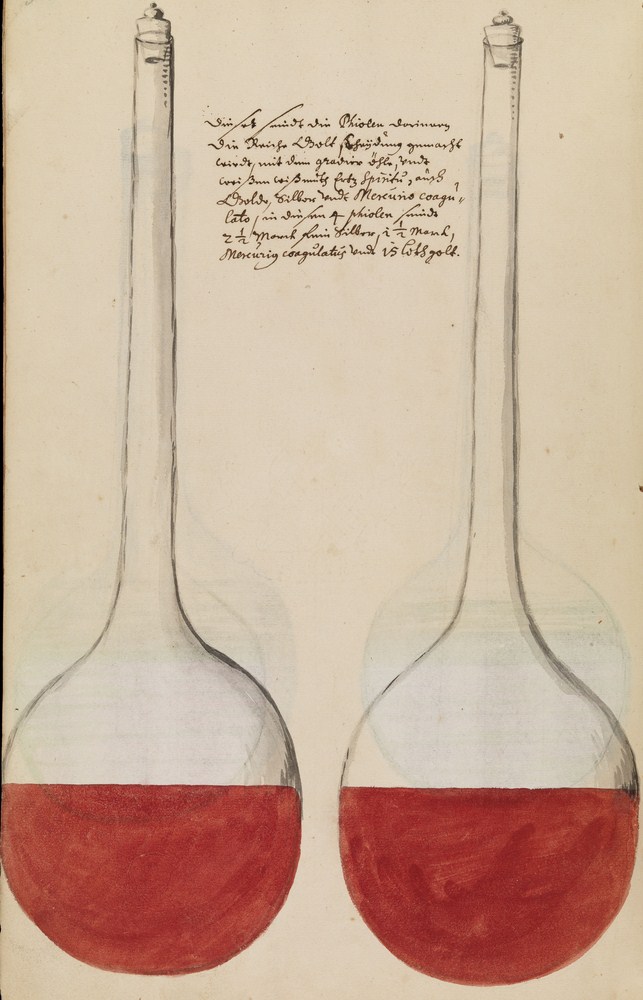 Diese sindt die Phiolen dorinnen
die Reiche Golt Scheydung gemacht
wirdt, mit dem gradier öhle, undt
weissen wißmuth Ertz Spiritu, auß
Golde, Silber undt Mercurio coagu=
lato, in diesen 4 phiolen sindt
2 1/2 Marck fein Silber, 1 1/2 Marck,
Mercurig coagulatus undt 15 loth golt.